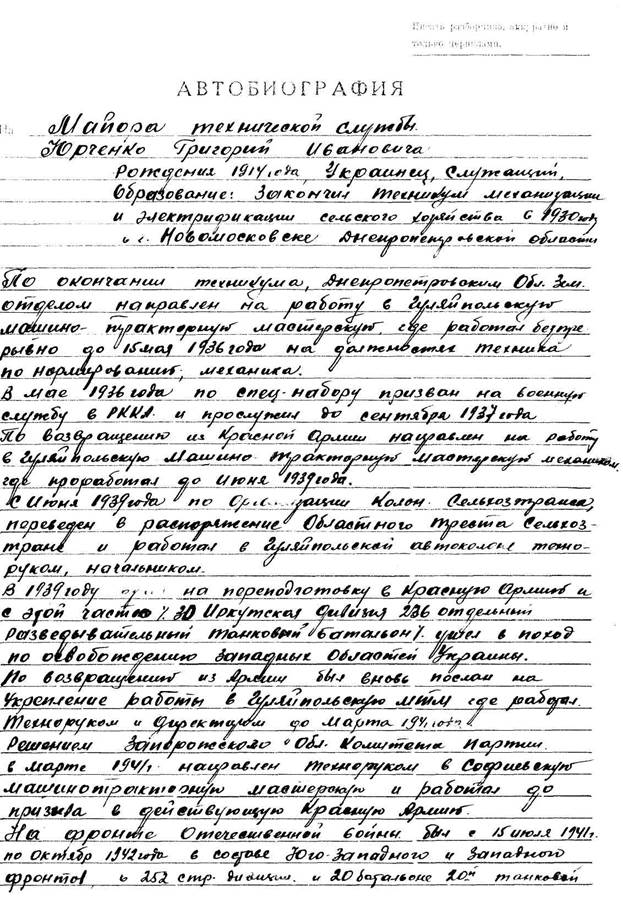 Писать разборчиво, аккуратно и
только чернилами.
АВТОБИОГРАФИЯ
Майора технической службы.
Юрченко Григорий Ивановича
Рождения 1914 года, Украинец, Служащий,
Образование: Закончил техникум механизации
и электрификации сельского хозяйства в 1930 году
в г. Новомосковске Днепропетровской области
По окончании техникума, Днепропетровским Обл. Зем.
отделом направлен на работу в Гуляйпольскую
машино-тракторную мастерскую, где работал безпре-
рывно до 15 мая 1936 года на должностях техника
по нормированию, механика.
В мае 1936 года по спец-набору призван на военную
службу в РККА. и прослужил до сентября 1937 года
По возвращению из Красной Армии направлен на работу
в Гуляйпольскую Машино-тракторную Мастерскую механиком,
где проработал до Июня 1939 года.
С Июня 1939 года по Колон. Сельхозтранса,
переведен в распоряжение Областного треста Сельхоз-
транс и работал в Гуляйпольской автоколоне техно-
руком, начальником.
В 1939 году на переподготовку в Красную Армию и
с этой частью /. 30 Иркутская дивизия 236 отдельный
разведывательный танковый батальон /. ушел в поход
по освобождению Западных Областей Украины.
По возвращению из Армии был вновь послан на
укрепление работы в Гуляйпольскую МТМ где работал.
Техноруком и Директором до Марта
Решением Запорожского Обл. Комитета Партии.
в Марте 1941 г. направлен техноруком в Софиевскую
машинотракторную мастерскую и работал до
призыва в действующую Красную Армию.
На фронте Отечественной войны. был с 15 июля 1941 г.
по октябрь 1942 года в составе Юго-Западного и Западного
фронтов, в 252 стр. дивизии. и 20 батальоне 20й танковой